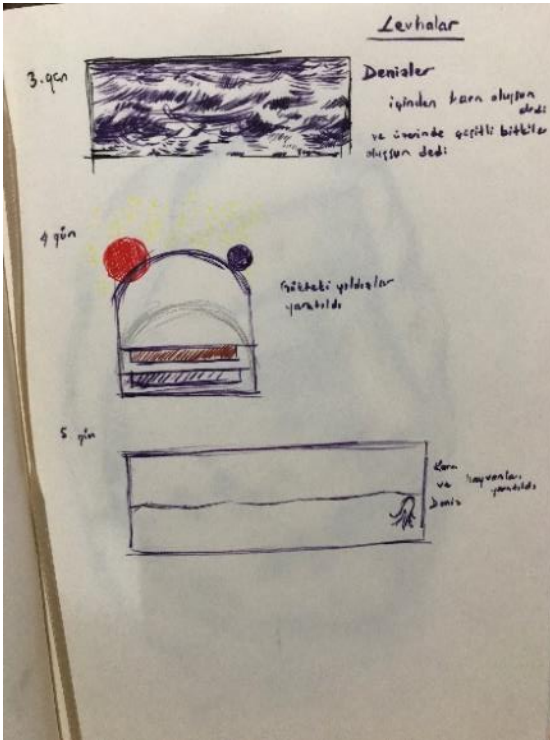 Levhalar
3. gün
Denizler
içinden kara oluşsun
dedi
ve üzerinde çeşitli bitkiler
oluşsun dedi
4 gün
Gökteki yıldızlar
yaratıldı
5 gün
Kara
ve hayvanları
yaratıldı
Deniz